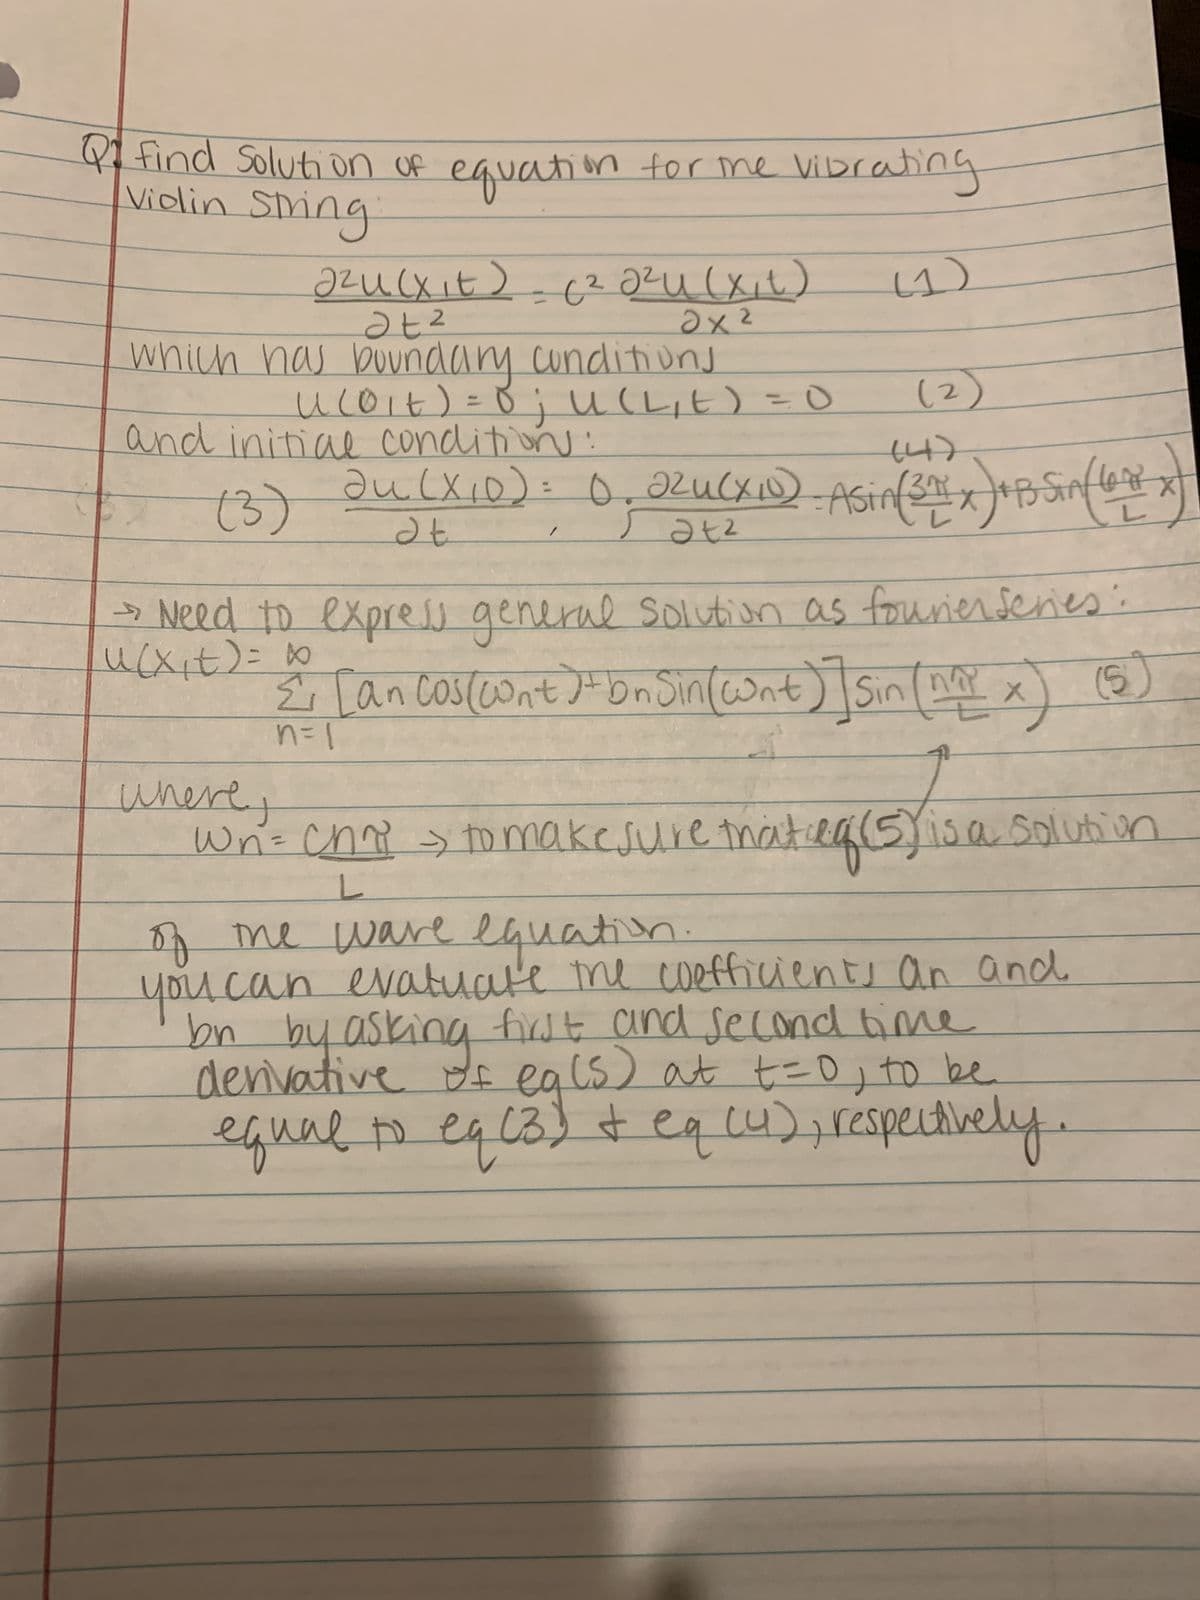 Q1 find Solution of equation for the vibrating
Violin string:
∂²u(x,t) / ∂t² = c² ∂²u(x,t) / ∂x² (1)
which has boundary conditions
u(0,t) = 0 ; u(L,t) = 0 (2)
and initial conditions:
(3) ∂u(x,0) / ∂t = 0 , ; ∂²u(x,0) / ∂t² = A sin(3π/L x) + B sin(6π/L x) (4)
→ Need to express general solution as fourier series:
u(x,t) = ∞
Σ [an cos(ωnt) + bn sin(ωnt)] sin(nπ/L x) (5)
n=1
where,
Wn = cnπ / L → to make sure that eq(5) is a solution
of the wave equation.
you can evatuate the coefficients an and
bn by asking first and second time
derivative of eq(5) at t=0, to be
equal to eq(3) & eq(4), respectively.